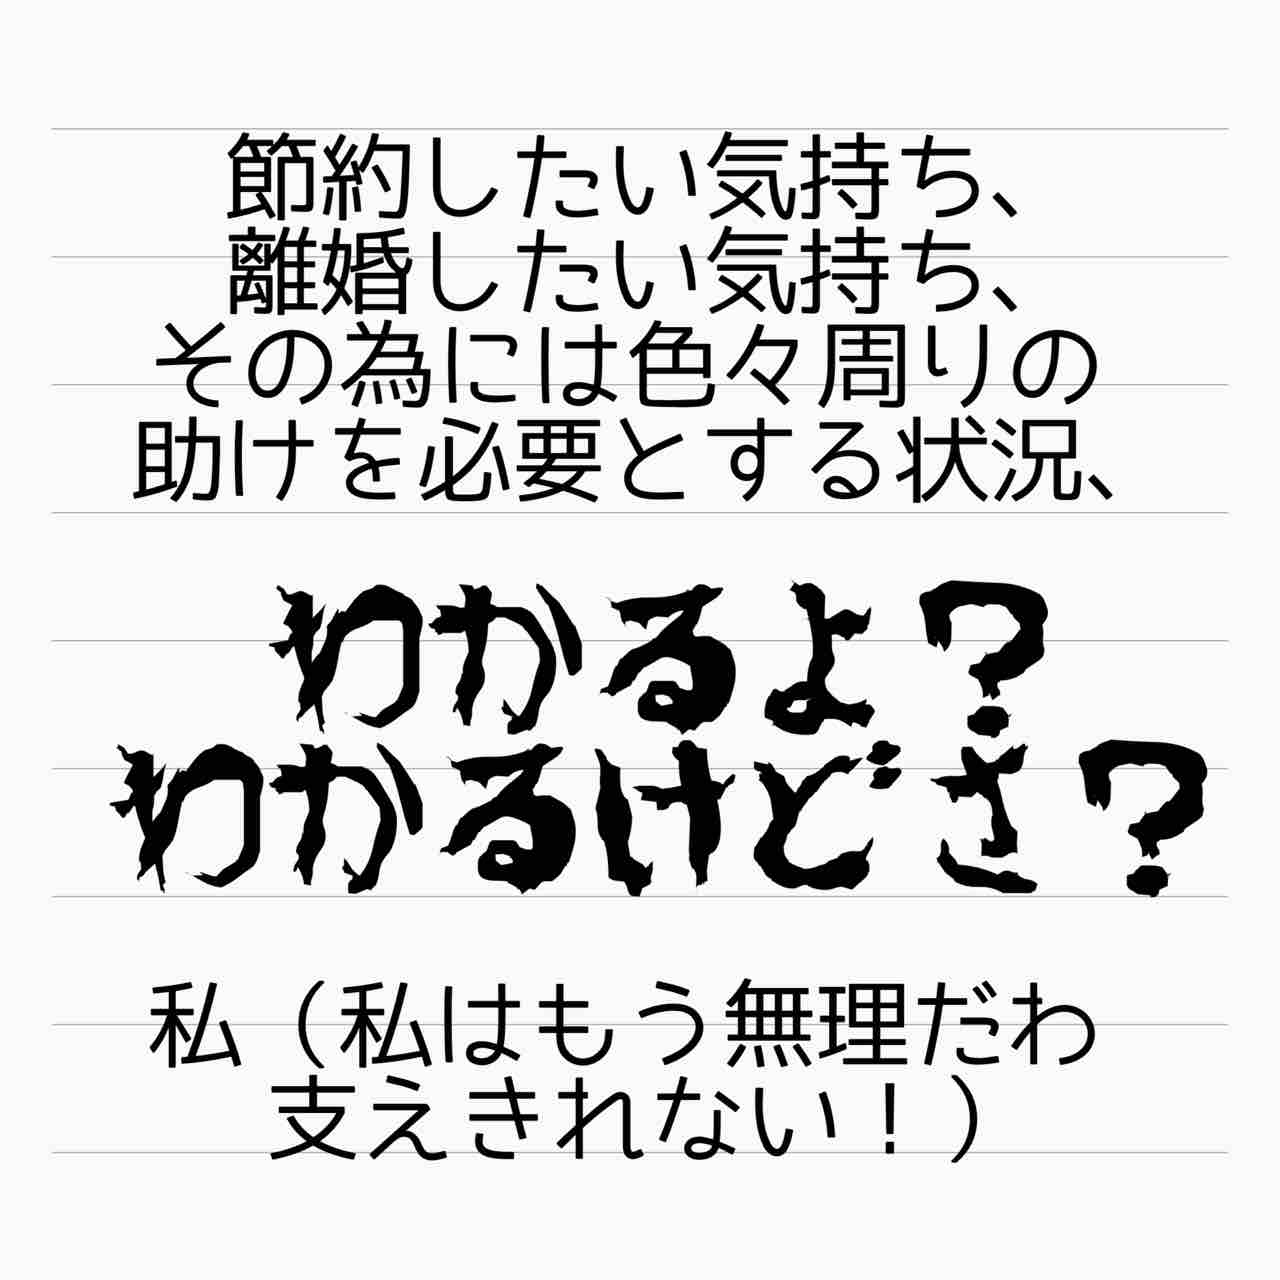 節約したい気持ち、
離婚したい気持ち、
その為には色々周りの
助けを必要とする状況、
わかるよ？
わかるけどさ？
私（私はもう無理だわ
支えきれない！）